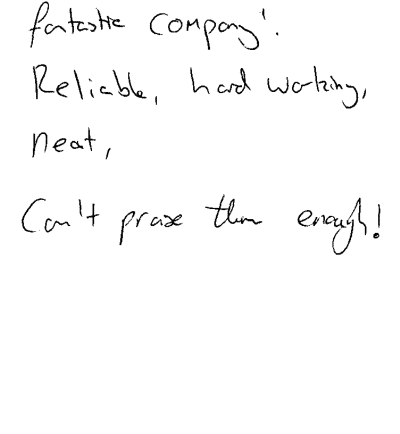 fantastic company'.
Reliable, hard working,
neat,
Can't praise them enough!